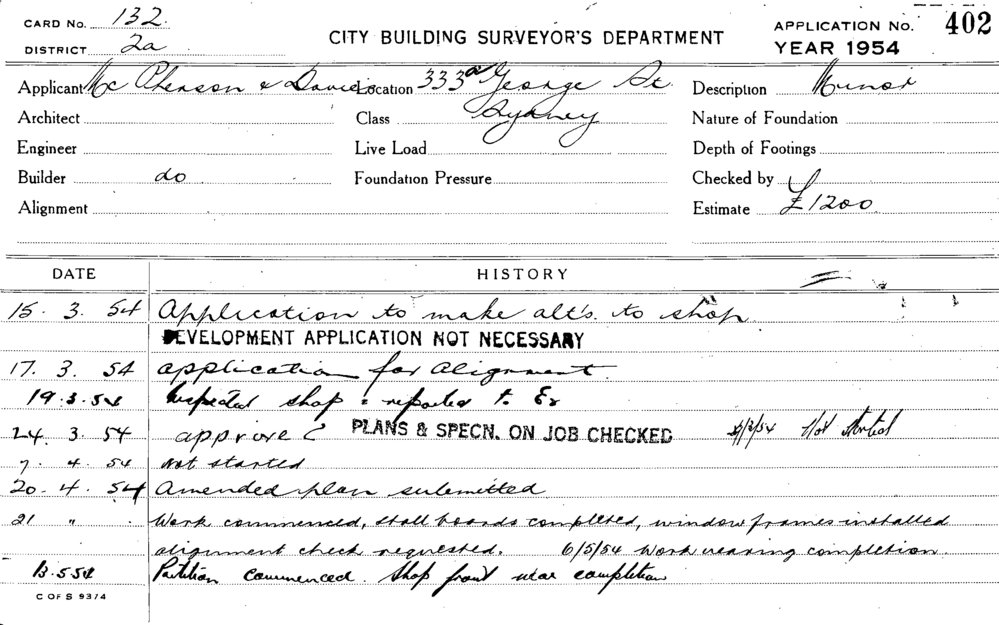 CARD No. 132.
DISTRICT 2a
CITY BUILDING SURVEYOR'S DEPARTMENT
APPLICATION No. 402
YEAR 1954
Applicant Mc Pherson & Davies Location 333a George St. Description Minor
Architect Class Sydney Nature of Foundation
Engineer Live Load Depth of Footings
Builder do Foundation Pressure Checked by
Alignment Estimate £1200
DATE HISTORY
15. 3. 54 Application to make alt's. to shop
DEVELOPMENT APPLICATION NOT NECESSARY
17. 3. 54 application for alignment.
19.3.54 Inspected shop & reported to Ex
24. 3. 54 approved PLANS & SPECN. ON JOB CHECKED /3/54 Not started
7. 4. 54 Not started
20. 4. 54 Amended plan submitted
21 " . Work commenced, stall boards completed, window frames installed
alignment check requested. 6/5/54 Work nearing completion.
13.5.54 Partition commenced. Shop front near completion
C OF S 93/4